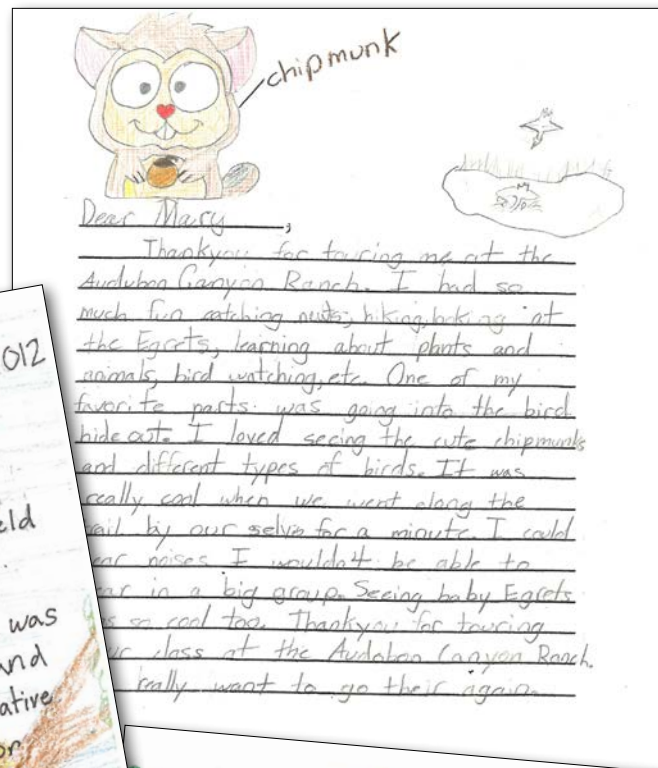 chipmunk
Dear Mary,
Thankyou for touring me at the
Audubon Canyon Ranch. I had so
much fun catching newts, hiking, looking at
the Egrets, learning about plants and
animals, bird watching, etc. One of my
favorite parts was going into the bird
hide out. I loved seeing the cute chipmunks
and different types of birds. It was
really cool when we went along the
rail by our selvs for a minute. I could
ear noises I wouldn't be able to
ear in a big group. Seeing baby Egrets
s so cool too. Thankyou for touring
ur class at the Audubon Canyon Ranch.
really want to go their again.
012
eld
was
and
ative
or